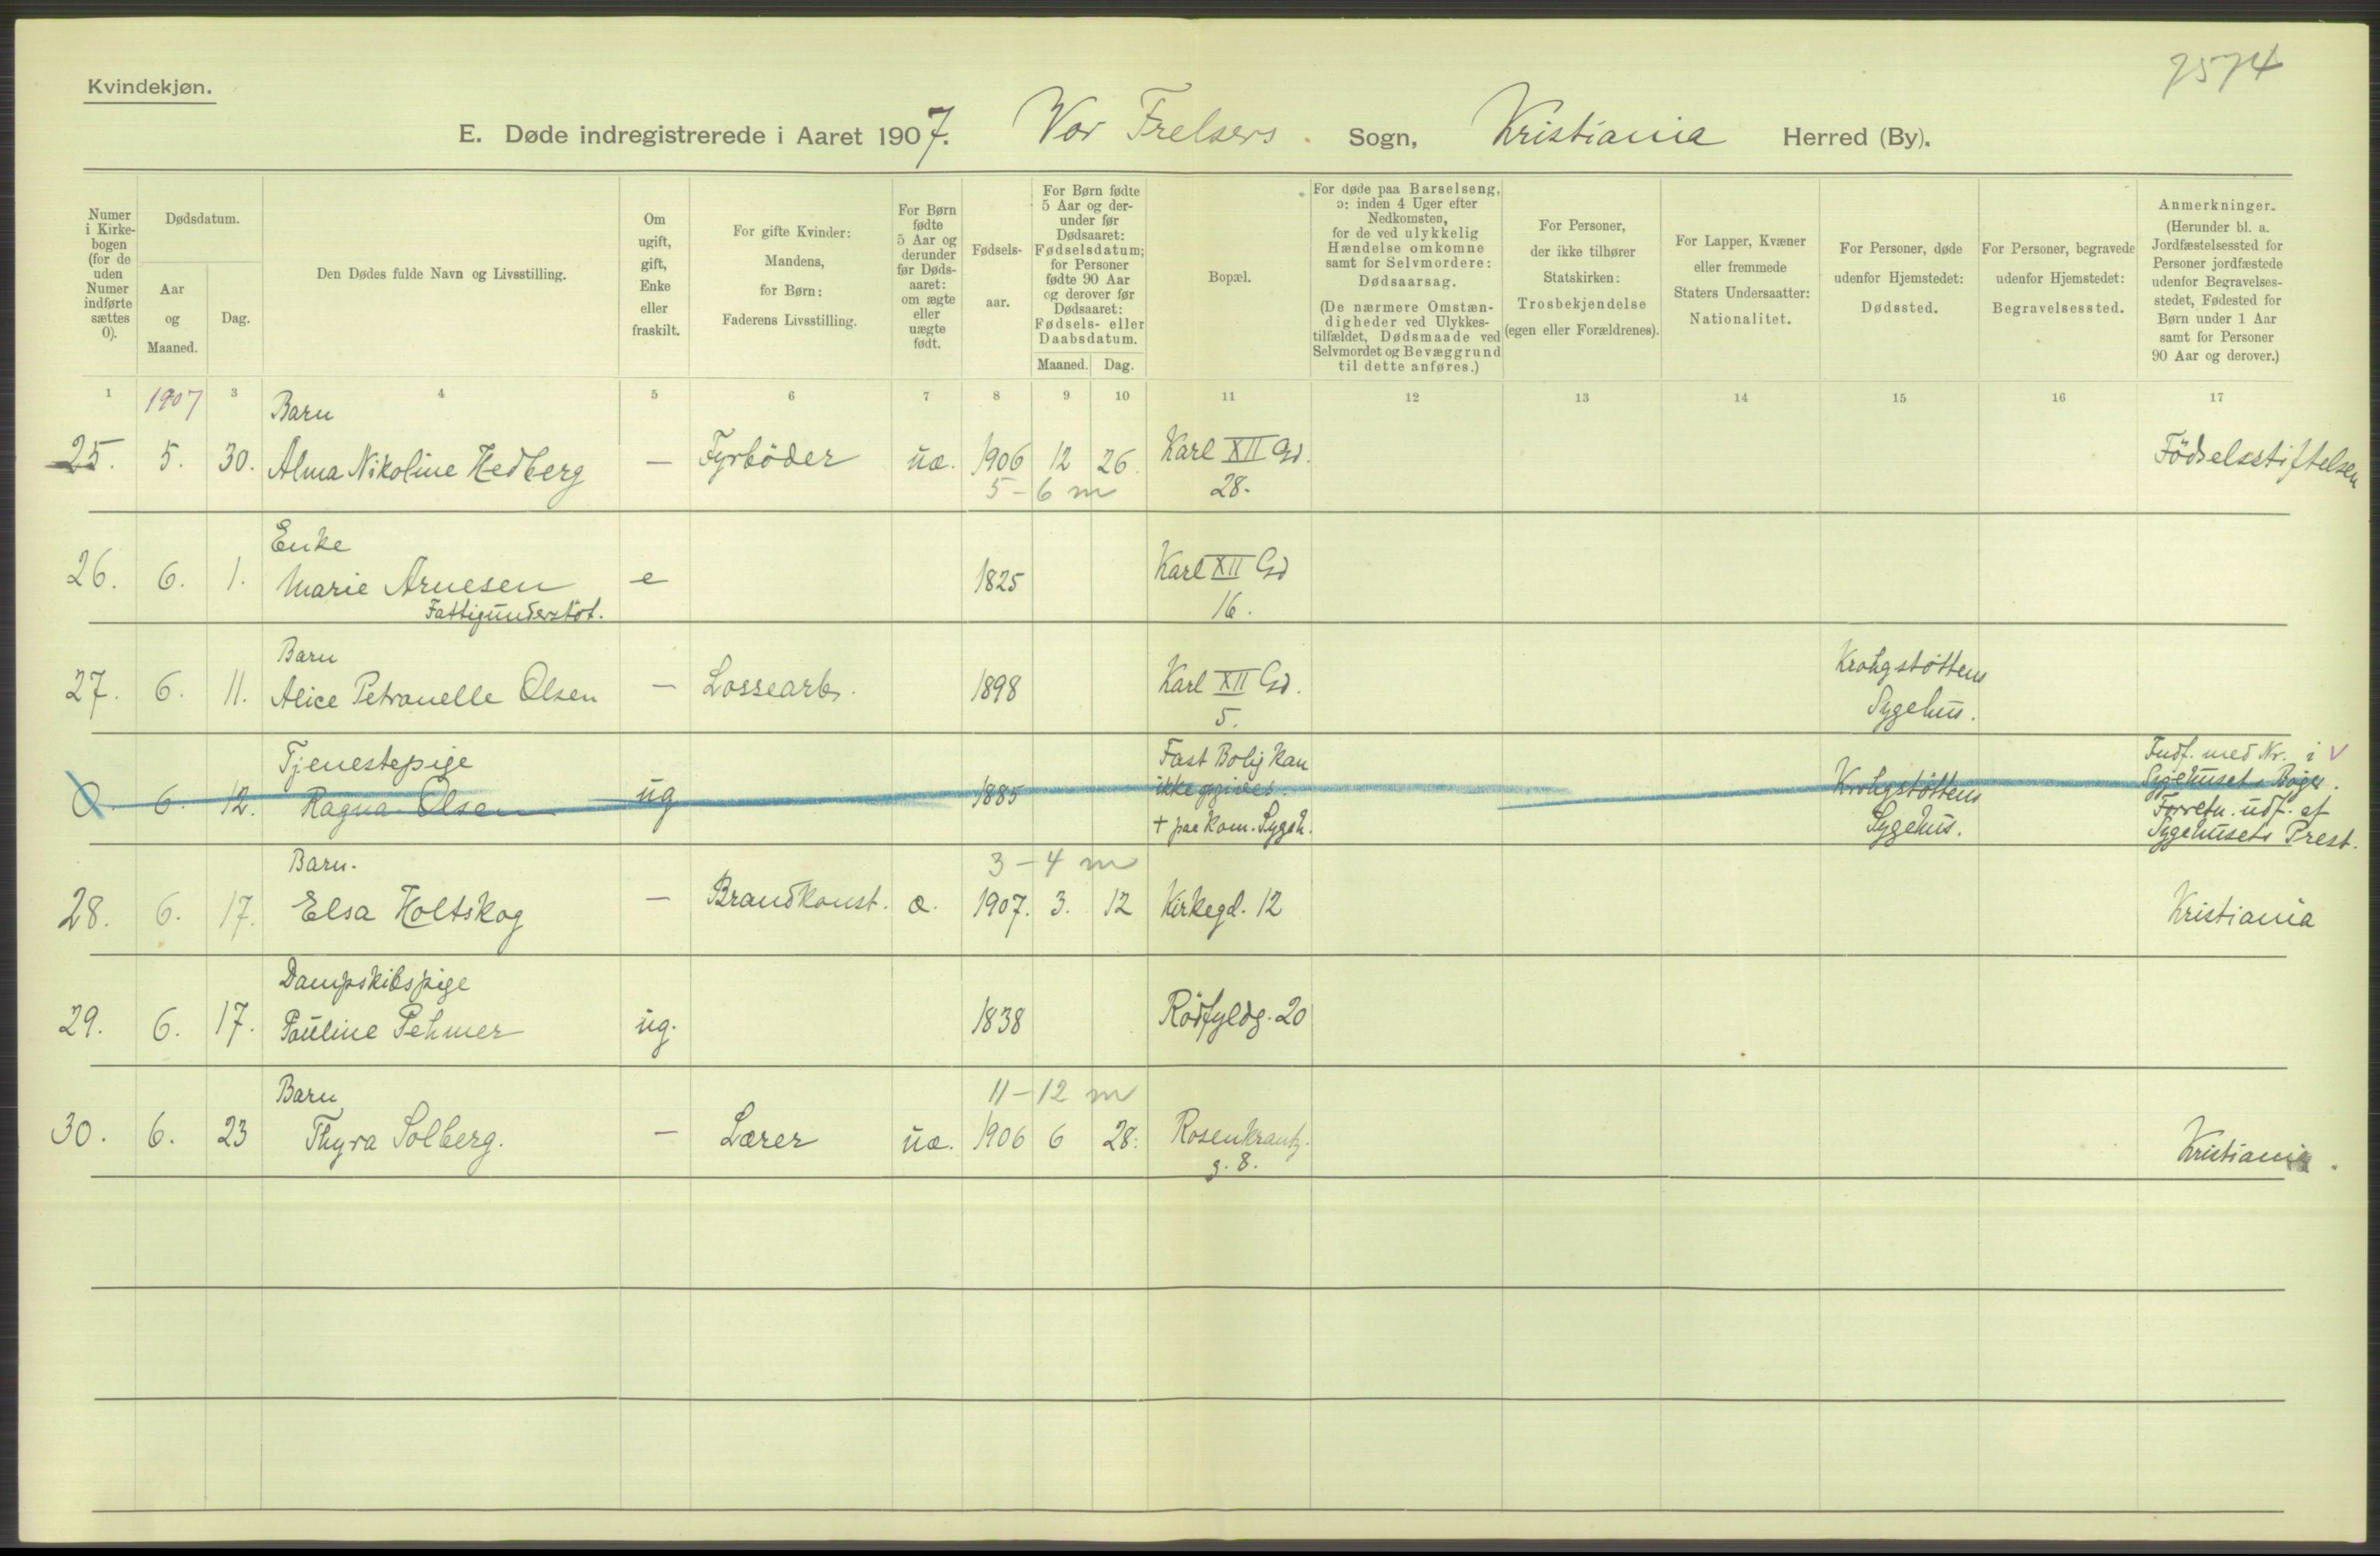 7574
Kvindekjøn.
E. Døde indregistrerede i Aaret 1907. Vor Frelsers. Sogn, Kristiania Herred (By).
Numer
i Kirke-
bogen
(for de
uden
Numer
indførte
sættes
0).
Dødsdatum.
Aar
og
Maaned.
Dag.
Den Dødes fulde Navn og Livsstilling.
Om
ugift,
gift,
Enke
eller
fraskilt.
For gifte Kvinder:
Mandens,
for Børn:
Faderens Livsstilling.
For Børn
fødte
5 Aar og
derunder
før Døds-
aaret:
om ægte
eller
uægte
født.
Fødsels-
aar.
For Børn fødte
5 Aar og der-
under før
Dødsaaret:
Fødselsdatum;
for Personer
fødte 90 Aar
og derover før
Dødsaaret:
Fødsels- eller
Daabsdatum.
Maaned. Dag.
Bopæl.
For døde paa Barselseng,
ɔ: inden 4 Uger efter
Nedkomsten,
for de ved ulykkelig
Hændelse omkomne
samt for Selvmordere:
Dødsaarsag.
(De nærmere Omstæn-
digheder ved Ulykkes-
tilfældet, Dødsmaade ved
Selvmordet og Bevæggrund
til dette anføres.)
For Personer,
der ikke tilhører
Statskirken:
Trosbekjendelse
(egen eller Forældrenes).
For Lapper, Kvæner
eller fremmede
Staters Undersaatter:
Nationalitet.
For Personer, døde
udenfor Hjemstedet:
Dødssted.
For Personer, begravede
udenfor Hjemstedet:
Begravelsessted.
Anmerkninger.
(Herunder bl. a.
Jordfæstelsessted for
Personer jordfæstede
udenfor Begravelses-
stedet, Fødested for
Børn under 1 Aar
samt for Personer
90 Aar og derover.)
1 3 4 5 6 7 8 9 10 11 12 13 14 15 16 17
1907
Barn
25. 5. 30. Alma Nikoline Hedberg — Fyrböder uæ. 1906 12 26. Karl XII Gd. Födselsstiftelsen
5-6 m 28.
Enke
26. 6. 1. Marie Arnesen e 1825 Karl XII Gd
Fattigunderstöt. 16.
Barn
27. 6. 11. Alice Petronelle Olsen — Lossearb. 1898 Karl XII Gd. Krohgstöttens
5. Sygehus.
Tjenestepige Fast Bolig kan Indf. med Nr. i V
0. 6. 12. Ragna Olsen ug 1885 ikke opgives. Krohgstöttens Sygehusets Böger.
+ paa Kom. Sygeh. Sygehus. Forretn. udf. af
Sygehusets Prest.
Barn. 3-4 m
28. 6. 17. Elsa Holtskog — Brandkonst. æ. 1907. 3. 12 Kirkegd. 12 Kristiania
Dampskibspige
29. 6. 17. Pauline Pehmer ug. 1838 Rödfyldg. 20
Barn 11-12 m
30. 6. 23 Thyra Solberg. — Lærer uæ. 1906 6 28. Rosenkrantz- Kristiania.
g. 8.